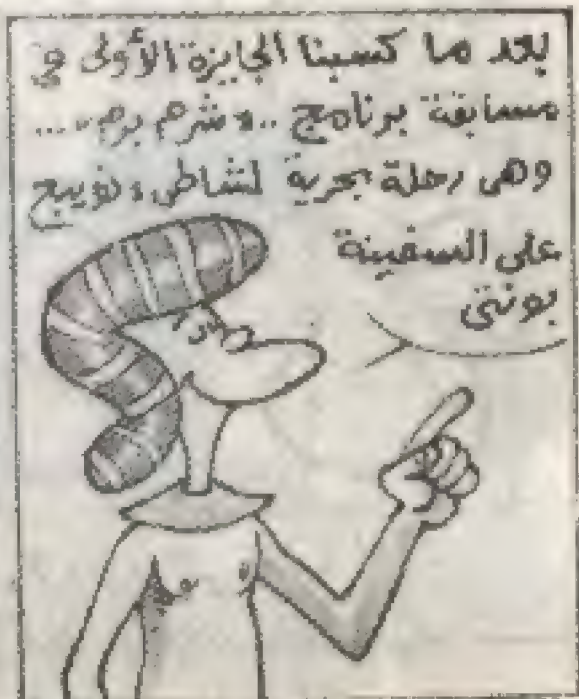 بعد ما كسبنا الجايزة الأولى في
مسابقة برنامج .. « شرم برم » ...
وهى رحلة بحرية لشاطى
على السفينة
بونتى